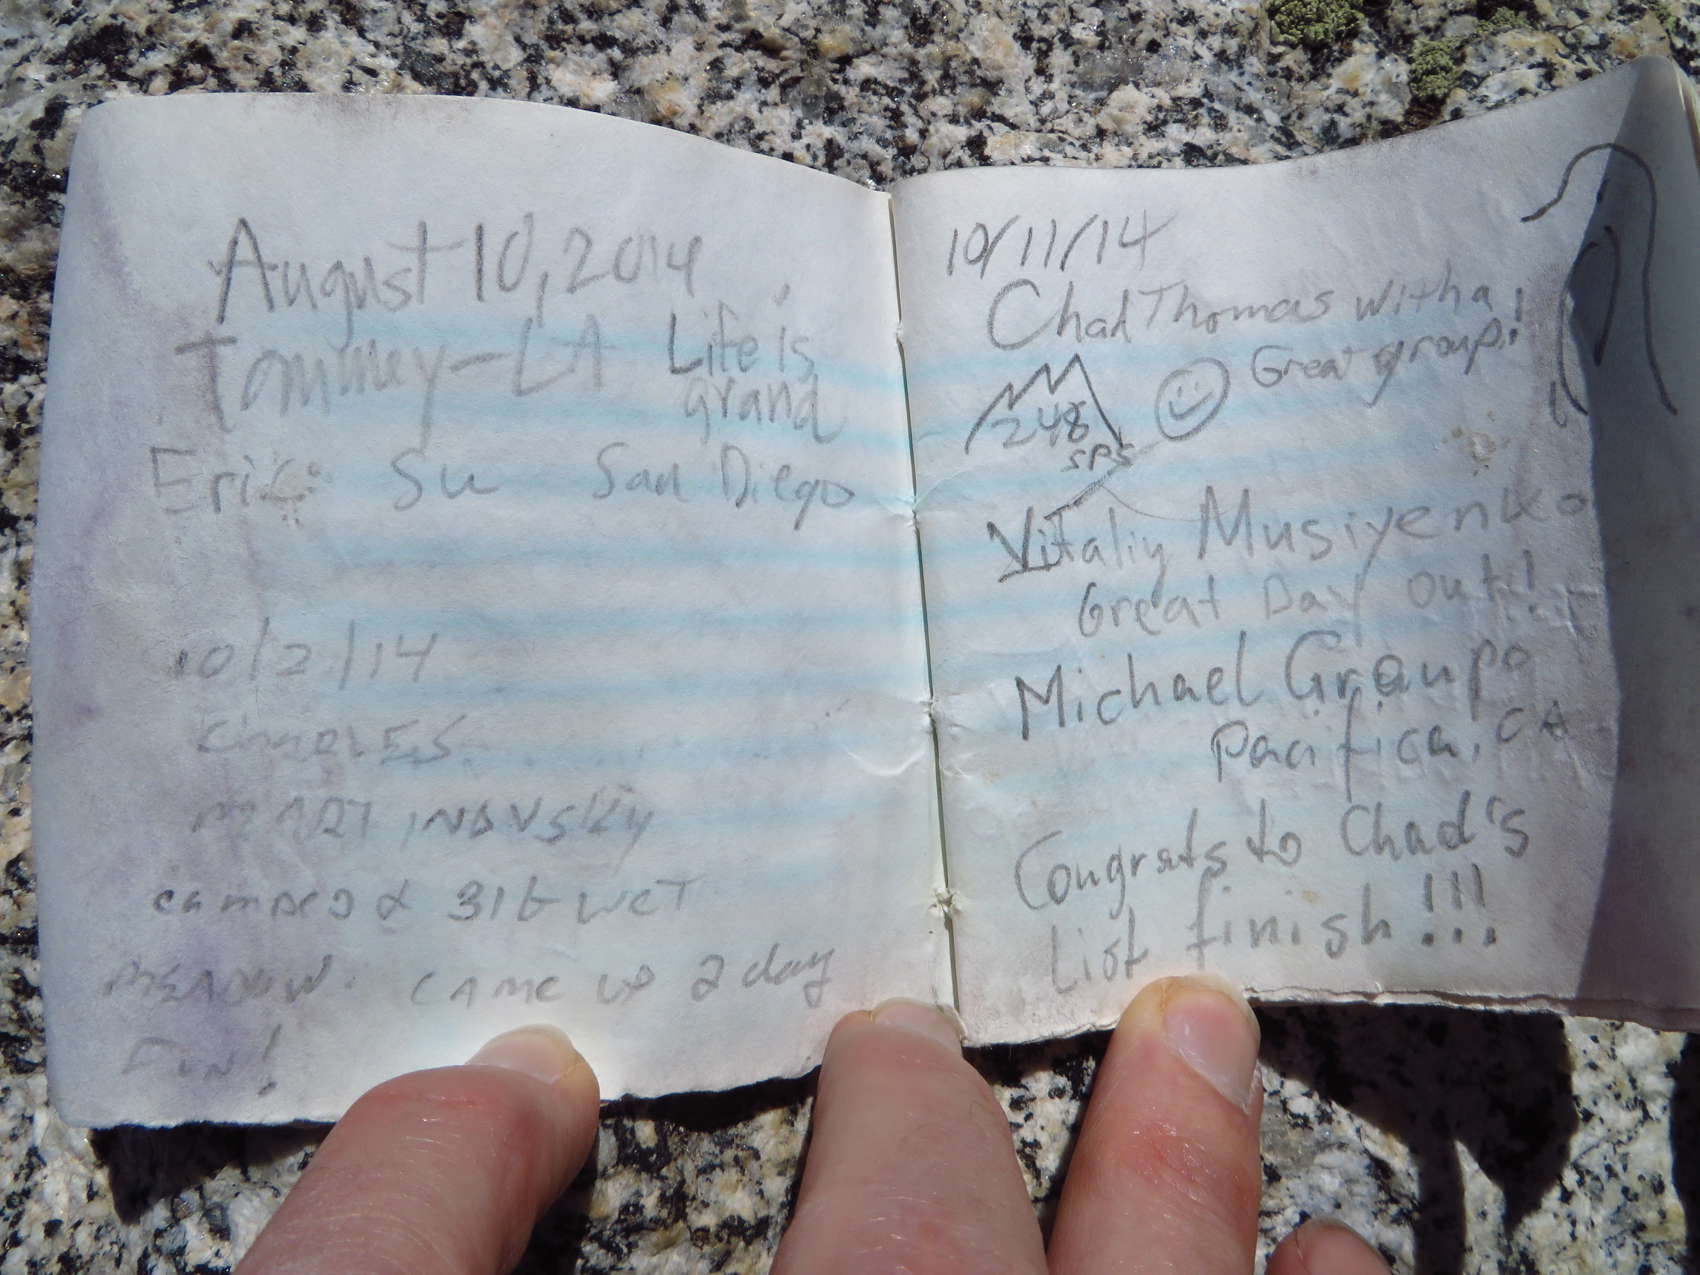 August 10, 2014
Tommey-LA Life is
grand
Eric Su San Diego
10/2/14
CHARLES
MARTINOVSKY
camped 2 BIG WET
MEADOW. CAME UP 2 day
FUN!
10/11/14
Chad Thomas with a
Great group!
248
SPS
Vitaliy Musiyenko
Great Day out!
Michael Graupe
Pacifica, CA
Congrats to Chad's
List finish!!!